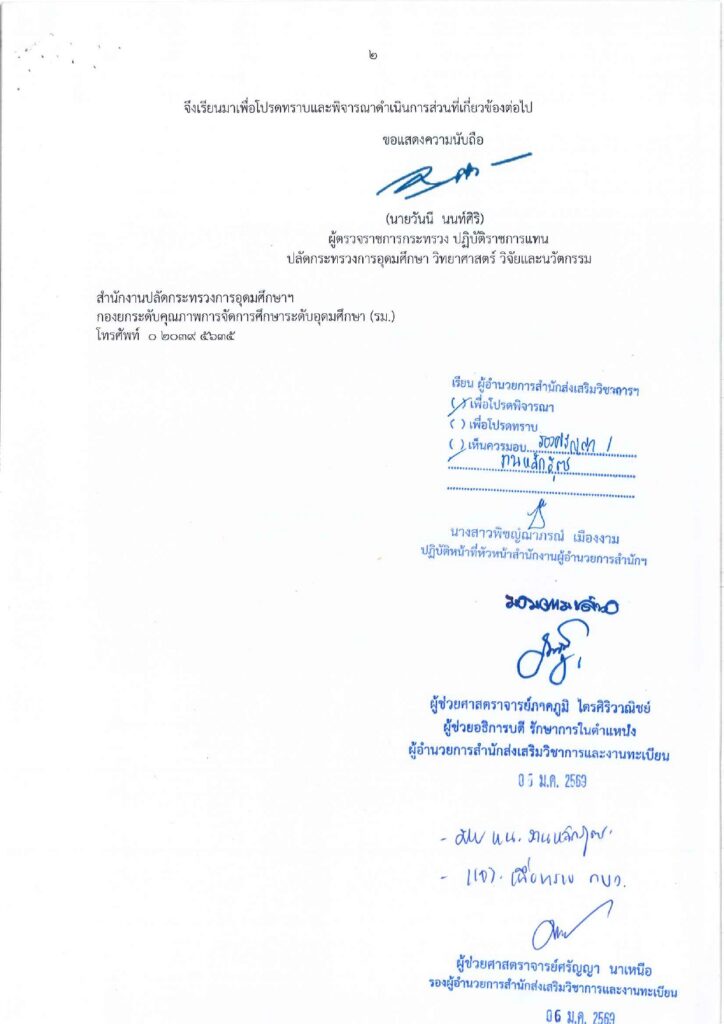 ๒
จึงเรียนมาเพื่อโปรดทราบและพิจารณาดำเนินการส่วนที่เกี่ยวข้องต่อไป
ขอแสดงความนับถือ
(นายวันนี นนท์ศิริ)
ผู้ตรวจราชการกระทรวง ปฏิบัติราชการแทน
ปลัดกระทรวงการอุดมศึกษา วิทยาศาสตร์ วิจัยและนวัตกรรม
สำนักงานปลัดกระทรวงการอุดมศึกษาฯ
กองยกระดับคุณภาพการจัดการศึกษาระดับอุดมศึกษา (รม.)
โทรศัพท์ ๐ ๒๐๓๙ ๕๖๓๕
เรียน ผู้อำนวยการสำนักส่งเสริมวิชาการฯ
(/) เพื่อโปรดพิจารณา
( ) เพื่อโปรดทราบ
(/) เห็นควรมอบ รองศรัญญา /
นางสาวพิชญ์ณาภรณ์ เมืองงาม
ปฏิบัติหน้าที่หัวหน้าสำนักงานผู้อำนวยการสำนักฯ
ผู้ช่วยศาสตราจารย์ภาคภูมิ ไตรศิริวาณิชย์
ผู้ช่วยอธิการบดี รักษาการในตำแหน่ง
ผู้อำนวยการสำนักส่งเสริมวิชาการและงานทะเบียน
ม.ค. 2569
ผู้ช่วยศาสตราจารย์ศรัญญา นาเหนือ
รองผู้อำนวยการสำนักส่งเสริมวิชาการและงานทะเบียน
06 ม.ค. 2569